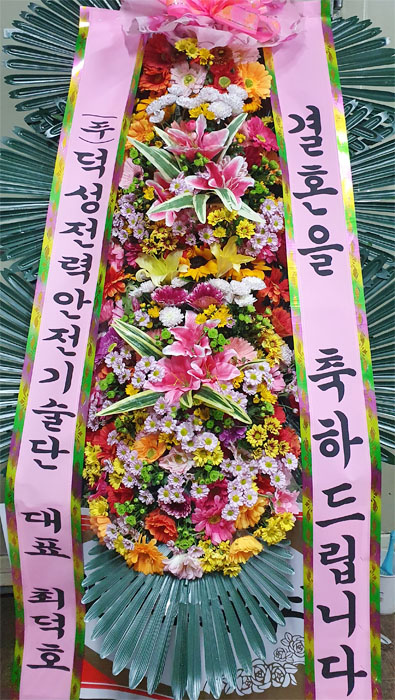 결혼을 축하드립니다
(주)덕성전력안전기술단 대표 최덕호